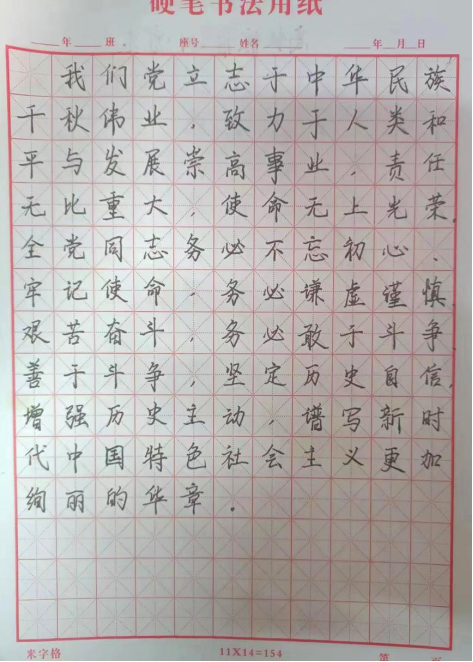 硬笔书法用纸
年 班 座号 姓名 年 月 日
我们党立志于中华民族
千秋伟业，致力于人类和
平与发展崇高事业，责任
无比重大，使命无上光荣。
全党同志务必不忘初心、
牢记使命，务必谦虚谨慎、
艰苦奋斗，务必敢于斗争、
善于斗争，坚定历史自信，
增强历史主动，谱写新时
代中国特色社会主义更加
绚丽的华章。
米字格 11X14=154 第 页